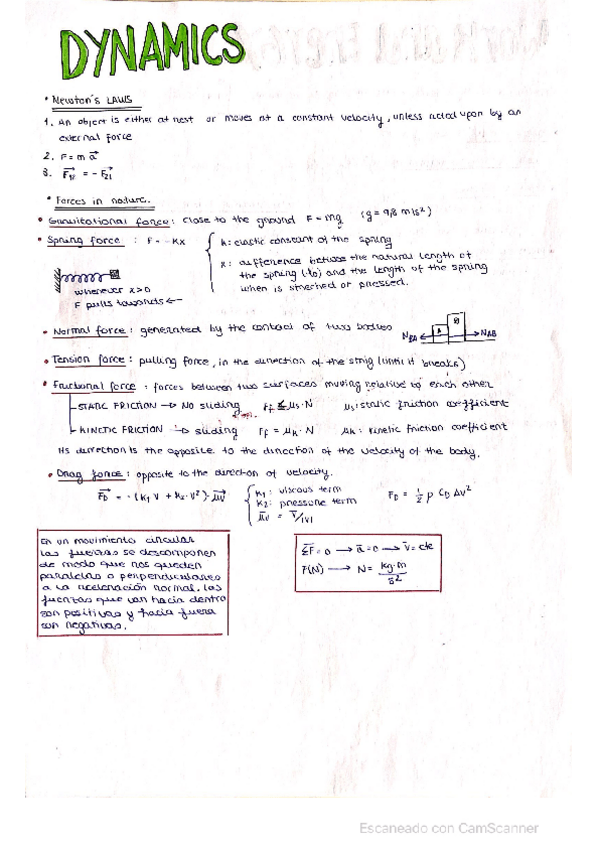 DYNAMICS
• Newton's LAWS
1. An object is either at rest or moves at a constant velocity, unless acted upon by an
external force
2. F = m a⃗
3. F⃗12 = - F⃗21
• Forces in nature.
• Gravitational force: close to the ground F = mg (g = 9,8 m/s²)
• Spring force : F = -Kx { K: elastic constant of the spring
x: difference between the natural length of
the spring (l0) and the length of the spring
when is streched or pressed.
whenever x>0
F pulls towards ←
• Normal force: generated by the contact of two bodies
A B NBA NAB
• Tension force: pulling force, in the direction of the string (until it breaks)
• Frictional force : forces between two surfaces muving relative to each other
STATIC FRICTION → NO sliding Ff ≤ μs·N μs: static friction coefficient
KINETIC FRICTION → sliding Ff = μk·N μk: kinetic friction coefficient
Its direction is the opposite to the direction of the velocity of the body.
• Drag force: opposite to the direction of velocity.
F⃗D = - (K1 V + K2·V²)·μ⃗v { K1: viscous term
K2: pressure term
μ⃗v = v⃗/|v|
FD = 1/2 ρ CD AV²
En un movimiento circular
las fuerzas se descomponen
de modo que nos queden
paralelas o perpendiculares
a la aceleración normal. Las
fuerzas que van hacia dentro
son positivas y hacia fuera
son negativas.
ΣF⃗ = 0 → a⃗ = 0 → v⃗ = cte
F(N) → N = kg·m/s²
Escaneado con CamScanner